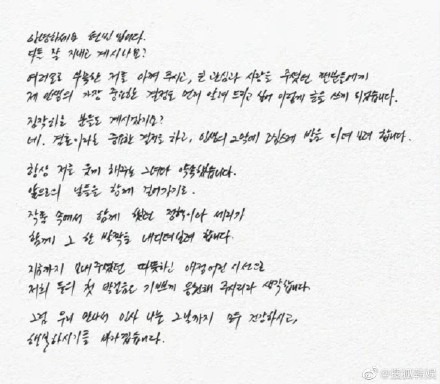 안녕하세요 현빈 입니다.
다들 잘 지내고 계시나요?
여러모로 부족한 저를 아껴 주시고, 큰 관심과 사랑을 주셨던 팬분들에게
제 인생의 가장 중요한 결정을 먼저 알려 드리고 싶어 이렇게 글을 쓰게 되었습니다.
짐작하신 분들도 계시겠지요?
네. 결혼이라는 중요한 결정을 하고, 인생의 2막에 조심스레 발을 디뎌 보려 합니다.
항상 저를 웃게 해주는 그녀와 약속했습니다.
앞으로의 날들을 함께 걸어가기로.
작품 속에서 함께 했던 정혁이와 세리가
함께 그 한 발짝을 내디뎌보려 합니다.
지금까지 보내주셨던 따뜻하고 애정어린 시선으로
저희 둘의 첫 발걸음도 기쁘게 응원해 주시리라 생각합니다.
그럼 우리 만나서 인사 나눌 그날까지 모두 건강하시고,
행복하시기를 바라겠습니다.